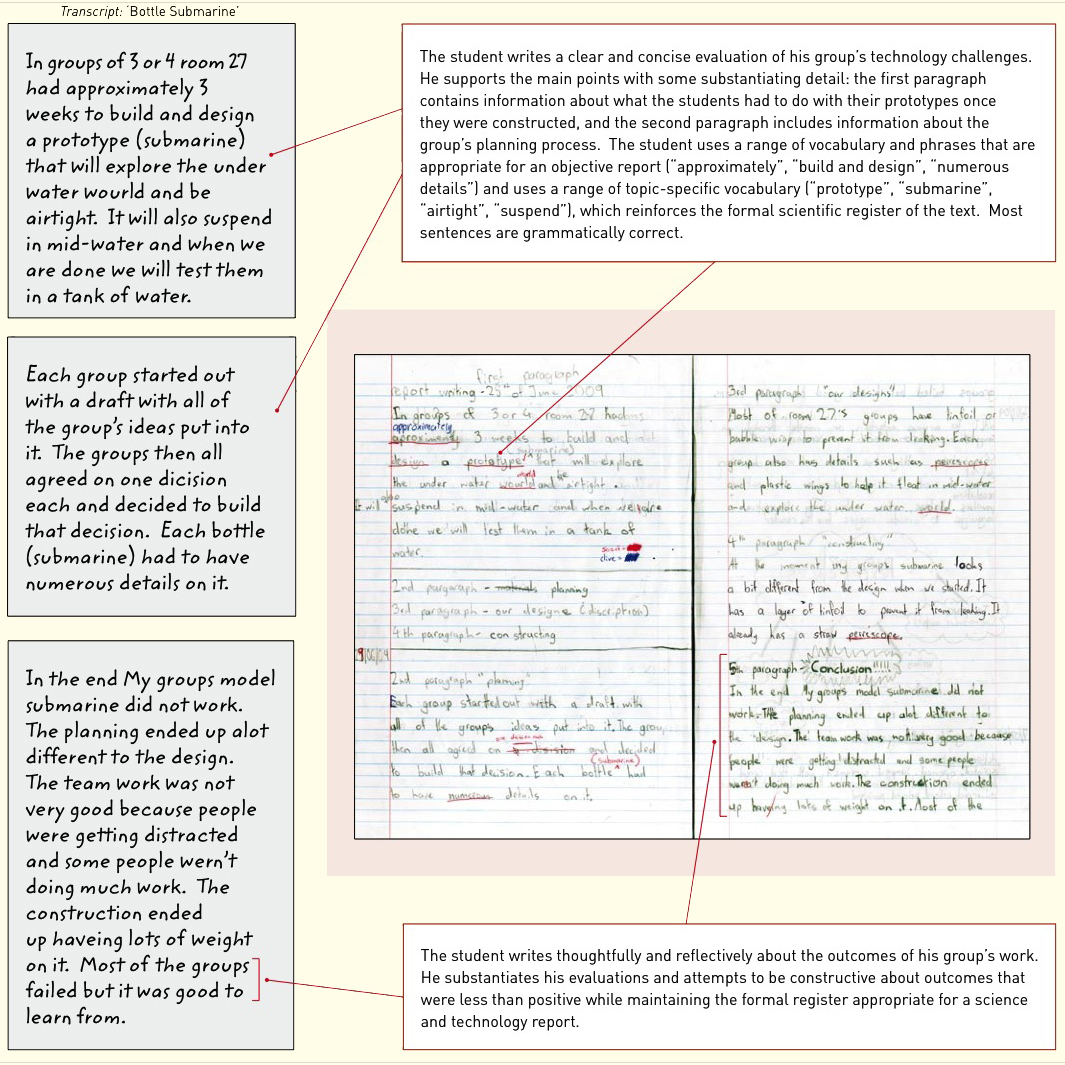 Transcript: ‘Bottle Submarine’
In groups of 3 or 4 room 27
had approximately 3
weeks to build and design
a prototype (submarine)
that will explore the under
water wourld and be
airtight. It will also suspend
in mid-water and when we
are done we will test them
in a tank of water.
Each group started out
with a draft with all of
the group’s ideas put into
it. The groups then all
agreed on one dicision
each and decided to build
that decision. Each bottle
(submarine) had to have
numerous details on it.
In the end My groups model
submarine did not work.
The planning ended up alot
different to the design.
The team work was not
very good because people
were getting distracted
and some people wern’t
doing much work. The
construction ended
up haveing lots of weight
on it. Most of the groups
failed but it was good to
learn from.
The student writes a clear and concise evaluation of his group’s technology challenges.
He supports the main points with some substantiating detail: the first paragraph
contains information about what the students had to do with their prototypes once
they were constructed, and the second paragraph includes information about the
group’s planning process. The student uses a range of vocabulary and phrases that are
appropriate for an objective report (“approximately”, “build and design”, “numerous
details”) and uses a range of topic-specific vocabulary (“prototype”, “submarine”,
“airtight”, “suspend”), which reinforces the formal scientific register of the text. Most
sentences are grammatically correct.
first paragraph
report writing - 25th of June 2009
In groups of 3 or 4 room 27
approximately
3 weeks to build and
(submarine)
design a prototype that will explore
world be
the under water wourld and airtight.
It will also suspend in mid-water and when we are
done we will test them in a tank of
water.
2nd paragraph - planning
3rd paragraph - our designe (discription)
4th paragraph - constructing
2nd paragraph "planning"
Each group started out with a draft with
all of the groups ideas put into it. The group
then all agreed on and decided
(submarine)
to build that decision. Each bottle had
to have numerous details on it.
3rd paragraph "our designs"
Most of room 27's groups have tinfoil or
bubble wrap to prevent it from leaking. Each
group also has details such as periscopes
and plastic wings to help it float in mid-water
and explore the under water world.
4th paragraph "constructing"
At the moment my groups submarine looks
a bit different from the design when we started. It
has a layer of tinfoil to prevent it from leaking. It
already has a straw periscope.
5th paragraph Conclusion!!!!!
In the end My groups model submarine did not
work. The planning ended up alot different to
the design. The team work was not very good because
people were getting distracted and some people
wern't doing much work. The construction ended
up having lots of weight on it. Most of the
The student writes thoughtfully and reflectively about the outcomes of his group’s work.
He substantiates his evaluations and attempts to be constructive about outcomes that
were less than positive while maintaining the formal register appropriate for a science
and technology report.